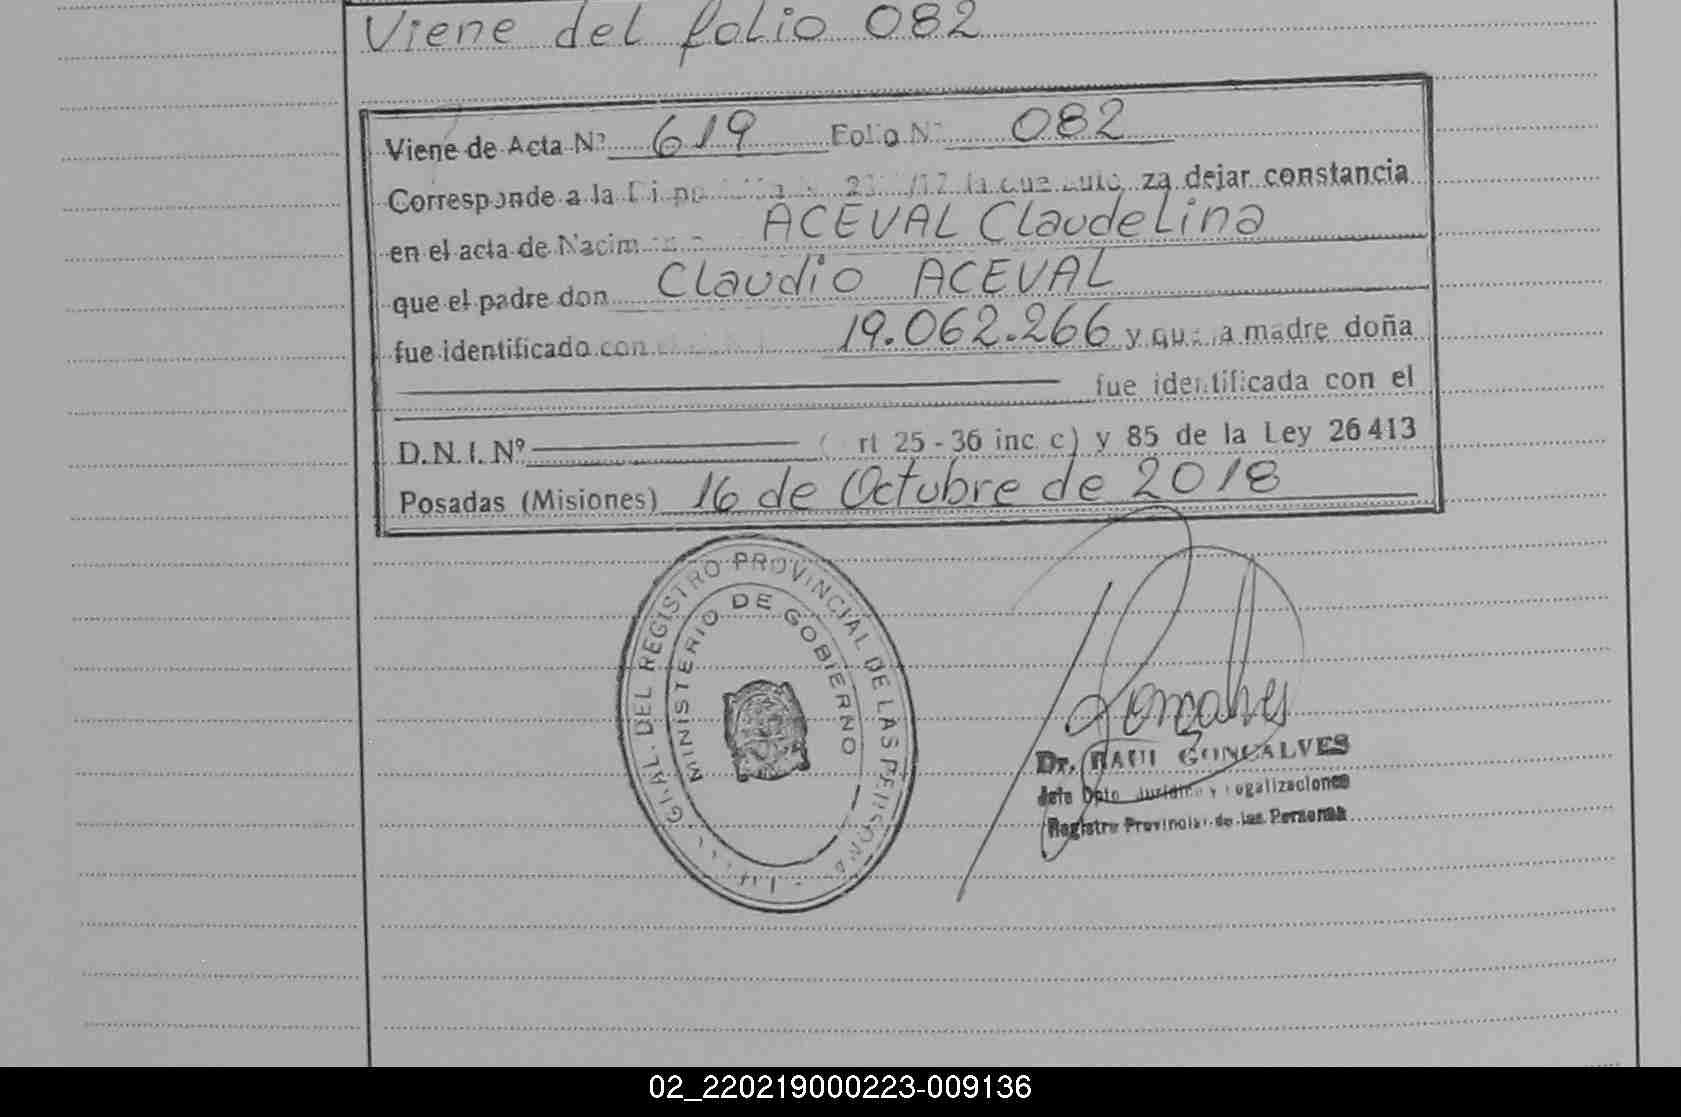 Viene del folio 082
Viene de Acta Nº 619 Folio Nº 082
Corresponde a la za dejar constancia
en el acta de Nacim ACEVAL Claudelina
que el padre don Claudio ACEVAL
fue identificado con 19.062.266 y que la madre doña
fue identificada con el
D.N.I. Nº rt 25 - 36 inc. c) y 85 de la Ley 26413
Posadas (Misiones) 16 de Octubre de 2018
GRAL. DEL REGISTRO PROVINCIAL DE LAS PERSONAS
MINISTERIO DE GOBIERNO
Dr. RAUL GONCALVES
Jefe Dpto. Jurídico y Legalizaciones
Registro Provincial de las Personas
02_220219000223-009136